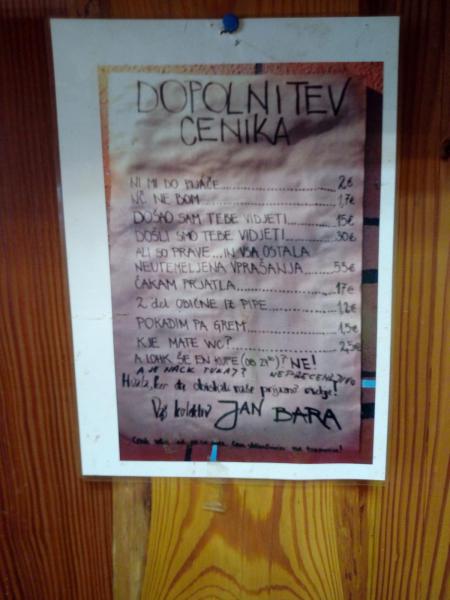 DOPOLNITEV
CENIKA
NI MI DO PIJAČE..................2€
NČ NE BOM..................1,7€
DOŠAO SAM TEBE VIDJETI..........15€
DOŠLI SMO TEBE VIDJETI..........30€
ALI SO PRAVE...IN VSA OSTALA
NEUTEMELJENA VPRAŠANJA..........55€
ČAKAM PRJATLA..................17€
2 del OBIČNE IZ PIPE..........1,2€
POKADIM PA GREM..................1,5€
KJE MATE WC?..................2,5€
A LOHK ŠE EN KUPE (OB 21³⁰)? NE!
A JE MACK TUKAJ? NEPRECENLJIVO
Hvala, ker ste obiskali naše prijazno osebje!
Vaš kolektiv JAN BARA